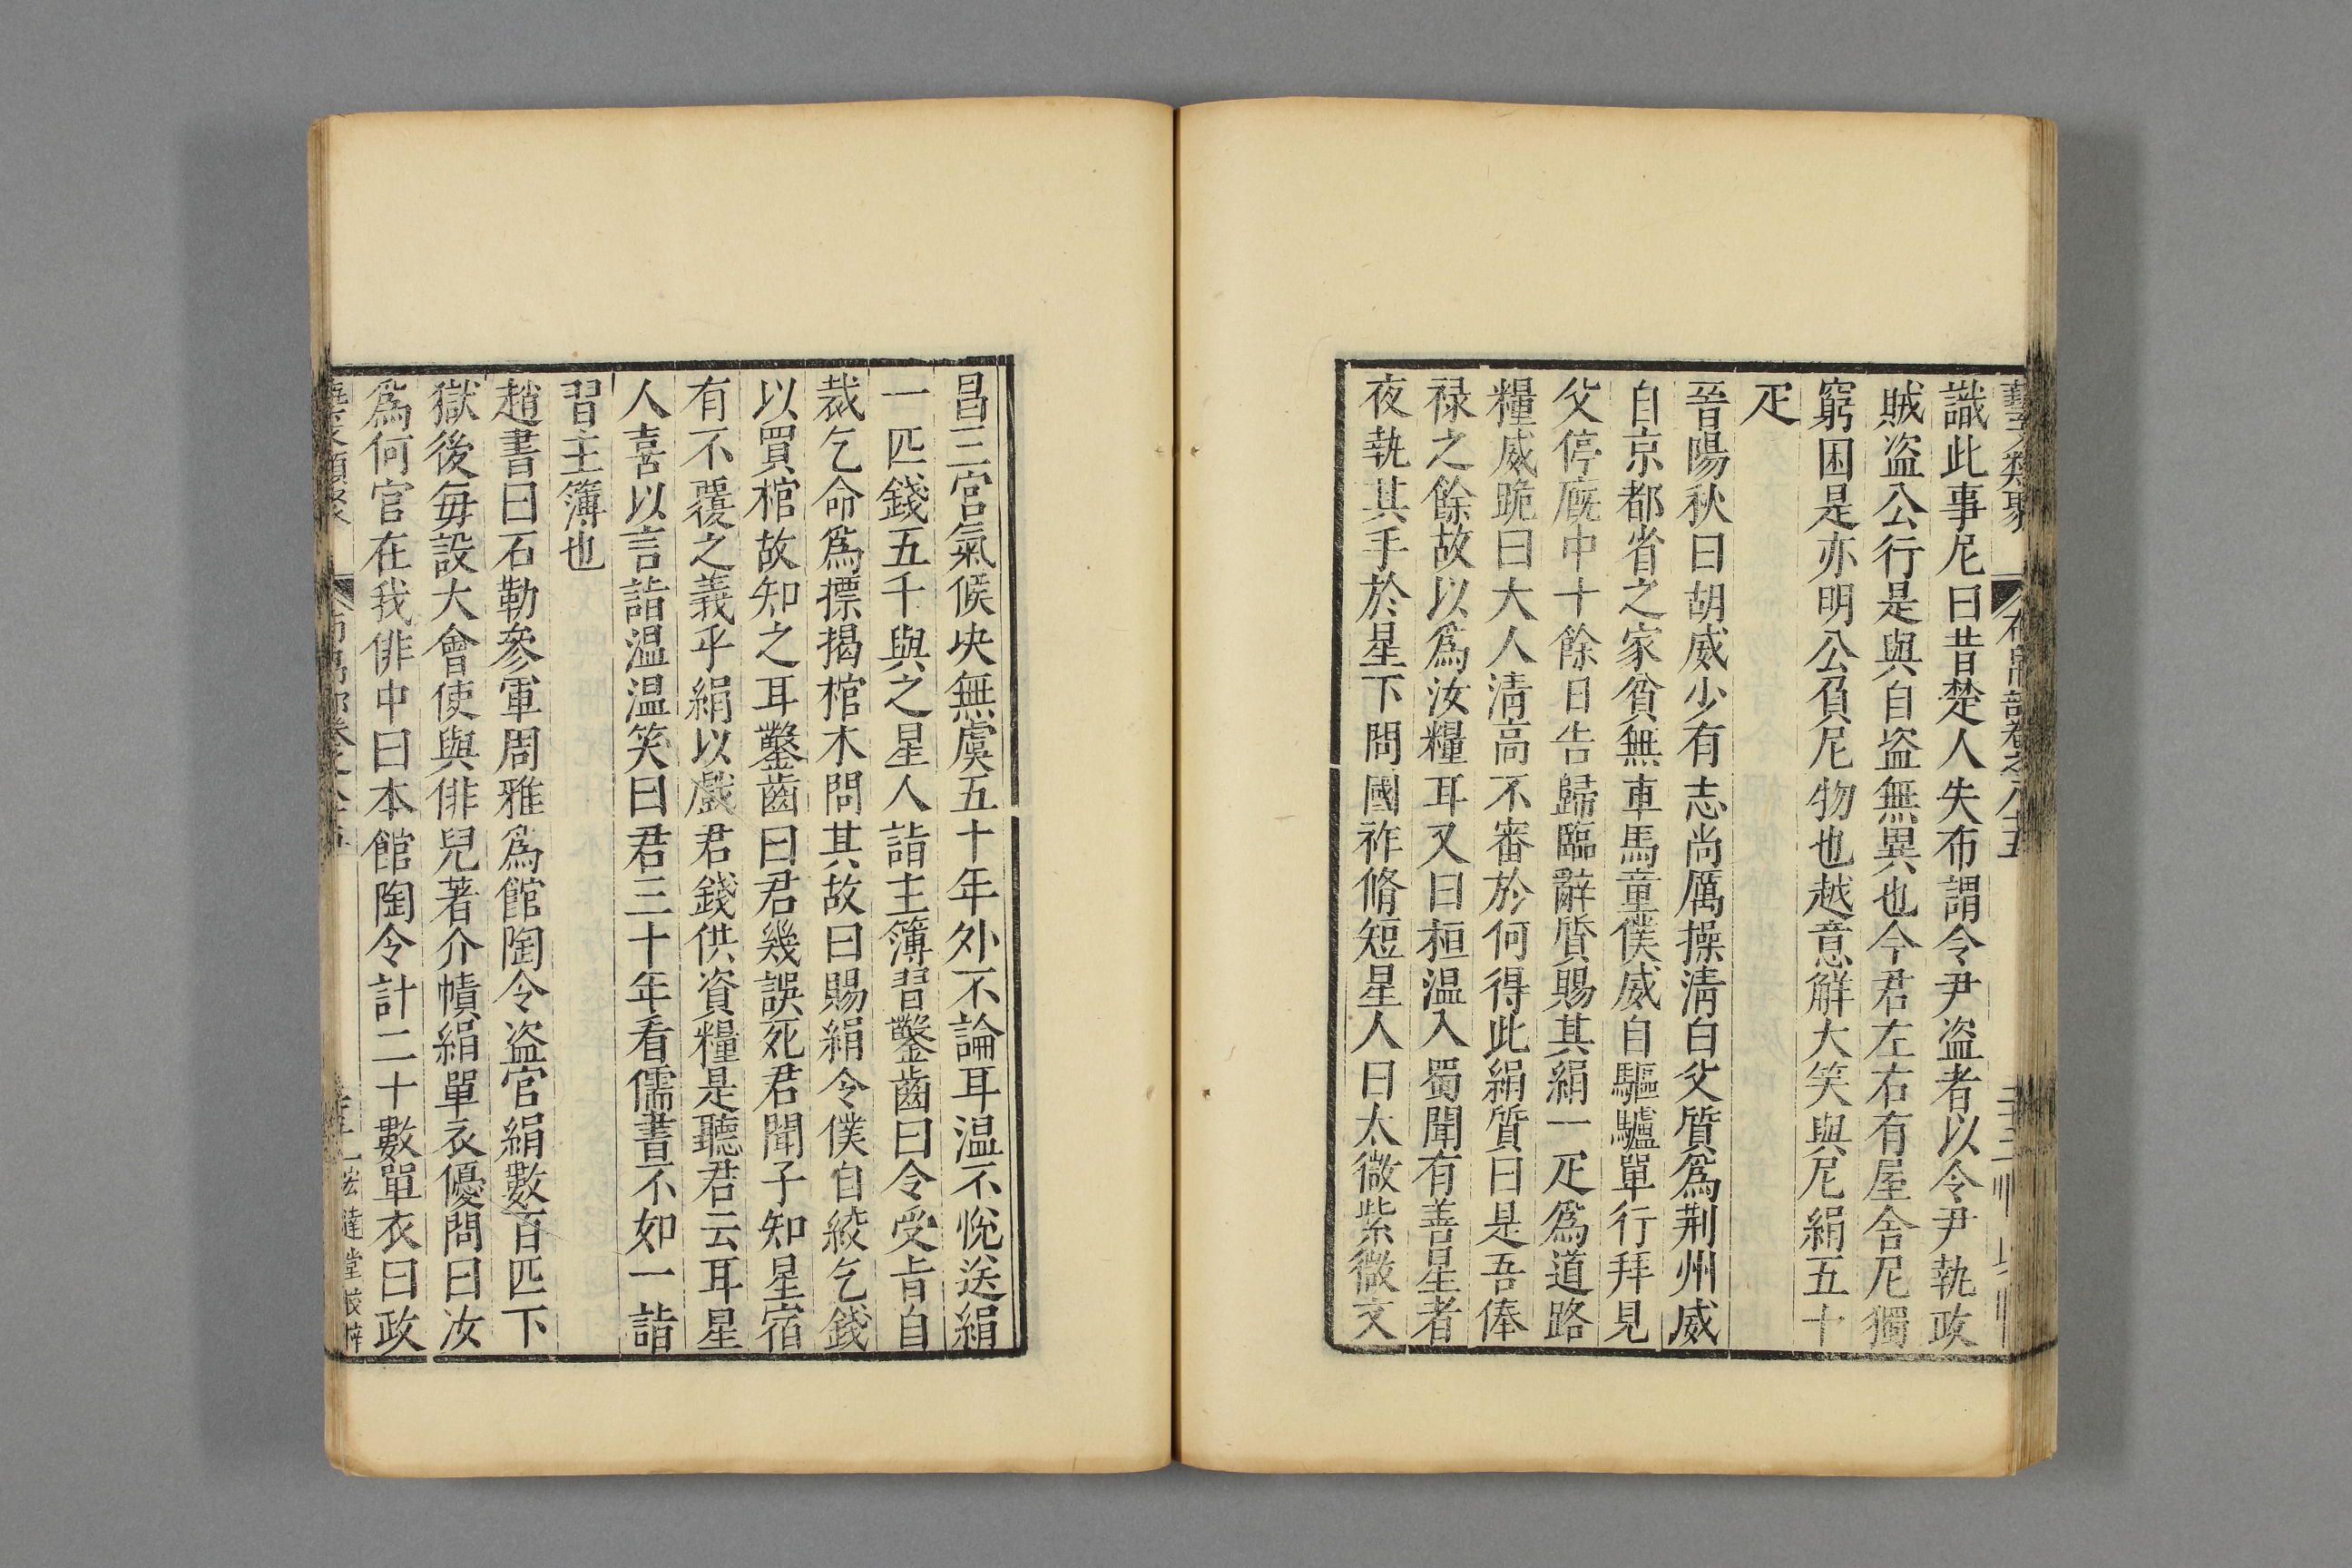 藝文類聚 布帛部卷之八十五
識此事尼曰昔楚人失布謂令尹盗者以令尹執政
賊盗公行是與自盗無異也今君左右有屋舍尼獨
窮困是亦明公負尼物也越意解大笑與尼絹五十
疋
晉陽秋曰胡威少有志尚厲操清白父質爲荆州威
自京都省之家貧無車馬童僕威自驅驢單行拜見
父停厩中十餘日告歸臨辭質賜其絹一疋爲道路
糧威跪曰大人清高不審於何得此絹質曰是吾俸
禄之餘故以爲汝糧耳又曰桓温入蜀聞有善星者
夜執其手於星下問國祚脩短星人曰太微紫微文
昌三宫氣候决無虞五十年外不論耳温不悅送絹
一匹錢五千與之星人詣主簿習鑿齒曰令受旨自
裁乞命爲摽揭棺木問其故曰賜絹令僕自絞乞錢
以買棺故知之耳鑿齒曰君幾誤死君聞子知星宿
有不覆之義乎絹以戲君錢供資糧是聽君云耳星
人喜以言詣温温笑曰君三十年看儒書不如一詣
習主簿也
趙書曰石勒參軍周雅爲館陶令盗官絹數百匹下
獄後每設大會使與俳兒著介幘絹單衣優問曰汝
爲何官在我俳中曰本館陶令計二十數單衣曰政